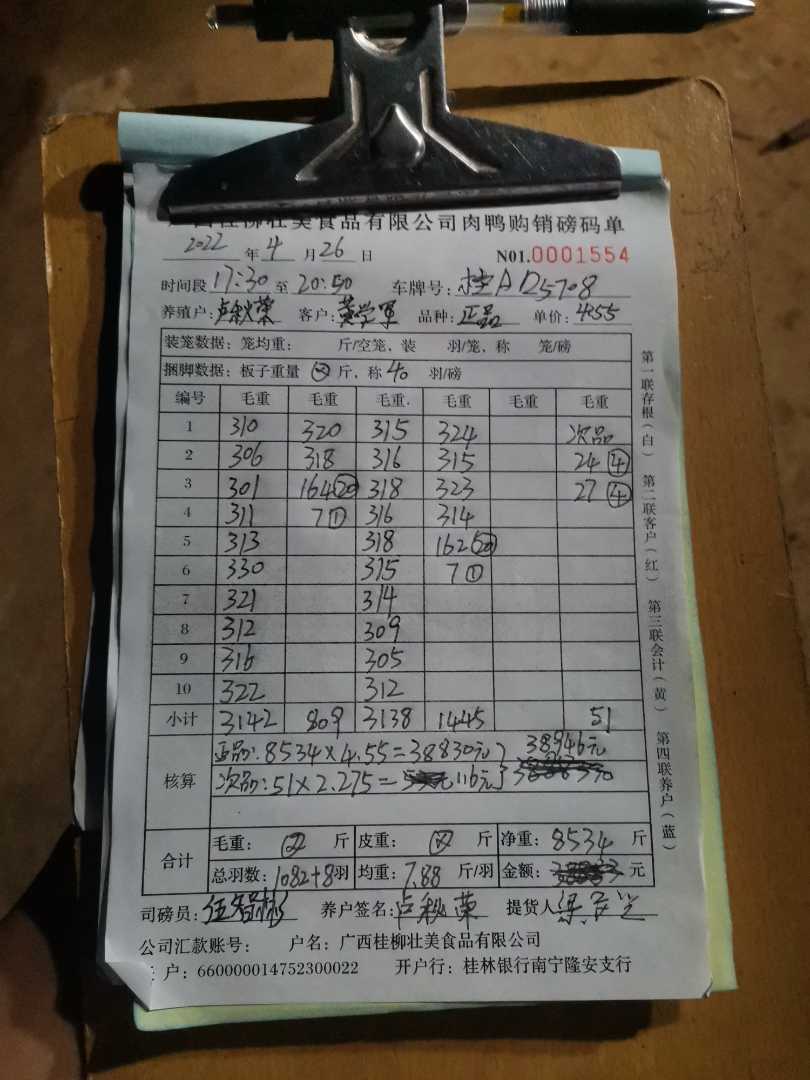 广西桂柳壮美食品有限公司肉鸭购销磅码单
2022 年 4 月 26 日 N01.0001554
时间段 17:30 至 20:50 车牌号: 桂AD5708
养殖户: 卢秋荣 客户: 黄学军 品种: 正品 单价: 4.55
装笼数据: 笼均重: 斤/空笼、装 羽/笼、称 笼/磅
捆脚数据: 板子重量 斤, 称 40 羽/磅
编号 毛重 毛重 毛重. 毛重 毛重 毛重
1 310 320 315 324 次品
2 306 318 316 315 24 ④
3 301 164 ⑳ 318 323 27 ④
4 311 7 ① 316 314
5 313 318 162 ⑳
6 330 315 7 ①
7 321 314
8 312 309
9 316 305
10 322 312
小计 3142 809 3138 1445 51
核算
正品: 8534×4.55=38830元} 38946元
次品: 51×2.275= 116元}
合计
毛重: 斤 皮重: 斤 净重: 8534 斤
总羽数: 1082+8羽 均重: 7.88 斤/羽 金额: 元
司磅员: 养户签名: 卢秋荣 提货人
公司汇款账号: 户名: 广西桂柳壮美食品有限公司
户: 660000014752300022 开户行: 桂林银行南宁隆安支行
第一联存根(白) 第二联客户(红) 第三联会计(黄) 第四联养户(蓝)